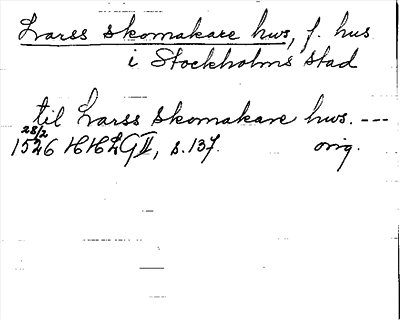 Larss skomakare hws, f. hus
i Stockholms stad
til Larss skomakare hws. ---
28/2
1526 HHLG II, s. 137. orig.